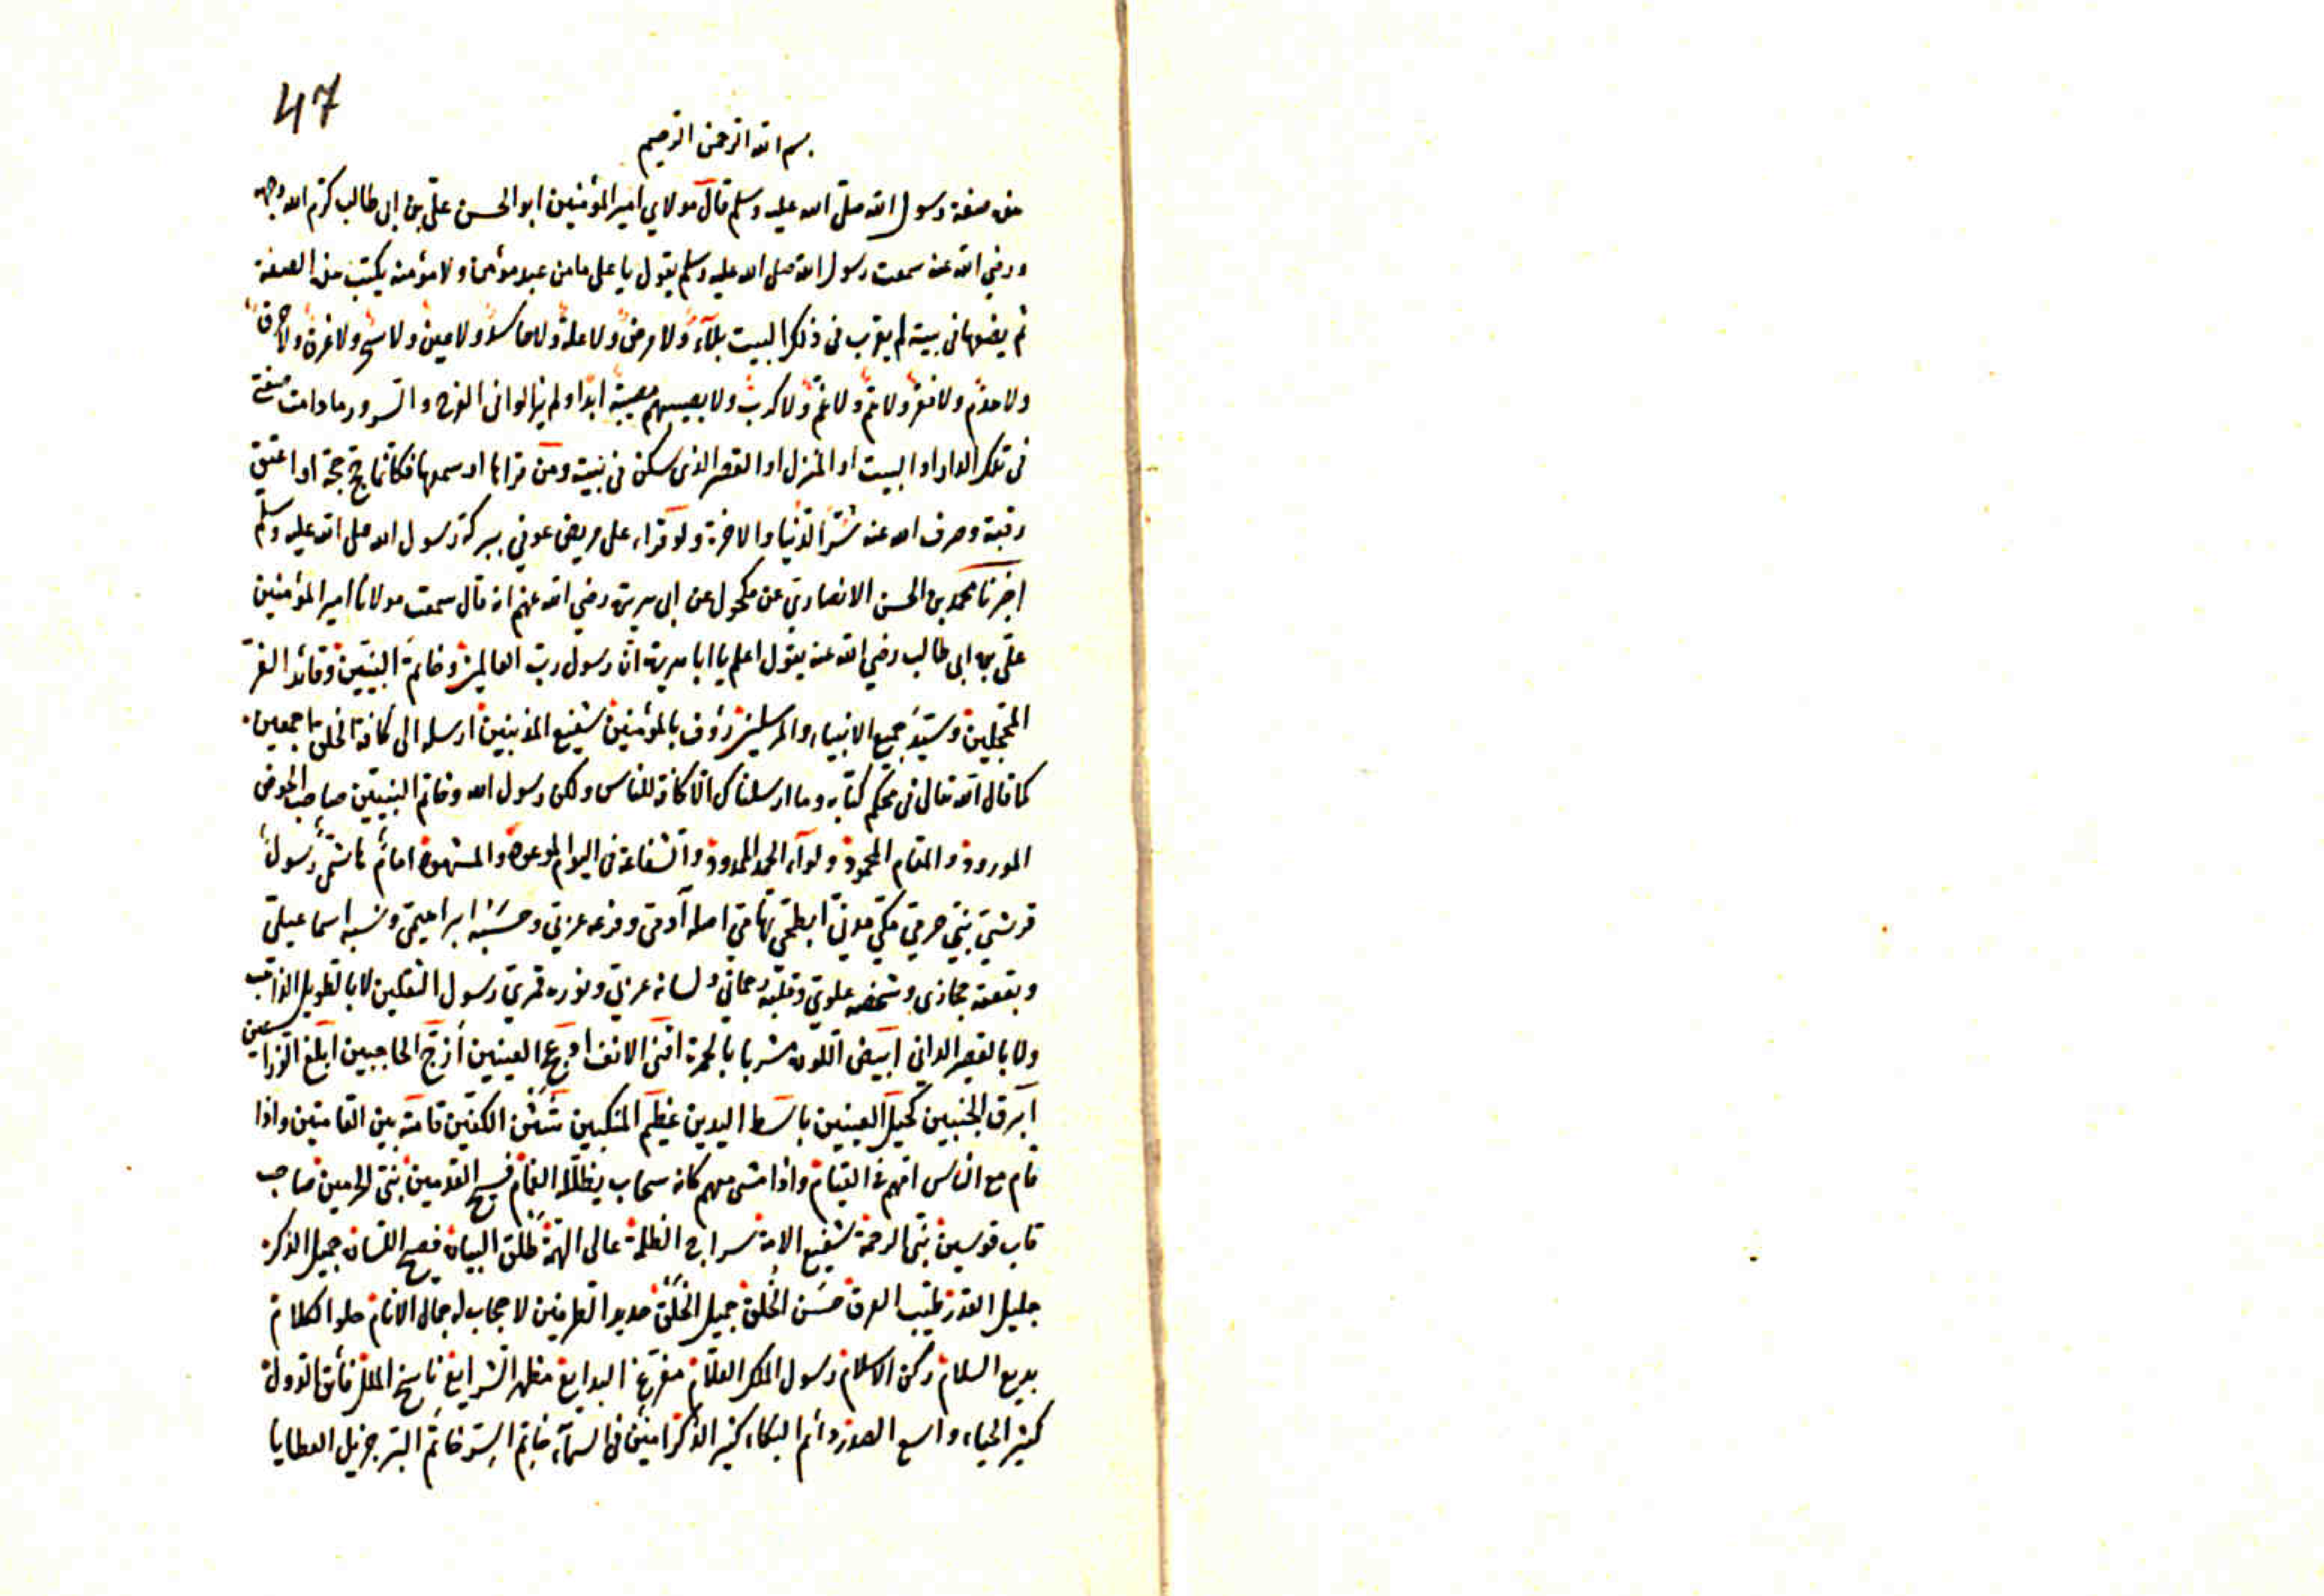 47
بسم الله الرحمن الرحيم
هذه صفة رسول الله صلى الله عليه وسلم قال مولاي امير المؤمنين ابو الحسن علي بن ابى طالب كرم الله وجهه
ورضي الله عنه سمعت رسول الله صلى الله عليه وسلم يقول يا على ما من عبد مؤمن ولا مؤمنه يكتب هذه الصفة
ثم يضعها فى بيته لم يقرب فى ذلك البيت بلاء ولا مرض ولا علة ولا حاسد ولا عين ولا سحر ولا غرق ولا حرق
ولا هدم ولا فقر ولا هم ولا غم ولا كرب ولا يصيبهم مصيبة ابدا ولم يزالوا فى الفرح والسرور ما دامت صفتى
فى تلك الدار او البيت او المنزل او القصر الذى سكن فى بيته ومن قراها او سمعها فكانما حج حجة او اعتق
رقبة وصرف الله عنه شر الدنيا والاخرة ولو قراء على مريض عوفي ببركة رسول الله صلى الله عليه وسلم
اخبرنا محمد بن الحسن الانصاري عن مكحول عن ابى هريرة رضي الله عنهم انه قال سمعت مولانا امير المؤمنين
علي بن ابى طالب رضي الله عنه يقول اعلم يا ابا هريرة ان رسول رب العالمين وخاتم النبيين وقائد الغر
المحجلين وسيد جميع الانبياء والمرسلين رؤف بالمؤمنين شفيع المذنبين ارسله الى كافة الخلق اجمعين
كما قال الله تعالى فى محكم كتابه وما ارسلناك الا كافة للناس ولكن رسول الله وخاتم النبيين صاحب الحوض
المورود والمقام المحمود ولوآء الحمد الممدود والشفاعة فى اليوم الموعود والمشهود امام هاشمى رسول
قرشي نبي حرمي مكي مدني ابطحى تهامي اصله آدمى وفرعه عربي وحسبه ابراهيمى ونسبه اسماعيلي
وبقعته حجازى وشخصه علوي وقلبه رحماني ولسانه عربي ونوره قمري رسول الثقلين لا بالطويل الذاهب
ولا بالقصير الدانى ابيض اللون مشربا بالحمرة اقنى الانف ادعج العينين ازج الحاجبين ابلغ الذراعين
ابرق الجنبين كحيل العينين باسط اليدين عظيم المنكبين شثن الكفين قامته بين القامتين واذا
قام مع الناس اغمرهم فى القيام واذا مشى معهم كانه سحاب يظلله الغمام فسيح القدمين نبى الحرمين صاحب
قاب قوسين نبى الرحمة شفيع الامة سراج الظلمة عالى الهمة طلق البيان فصيح اللسان جميل الذكر
جليل القدر طيب العرق حسن الخلق جميل الخلق حديد الطرفين لا حجاب له جمال الانام حلو الكلام
بديع السلام ركن الاسلام رسول الملك العلام مفرع البدايع مظهر الشرايع ناسخ الملل فائق الدول
كثير الحياء واسع الصدر دائم البكاء كثير الذكر امين فى السمآء خاتم السر خاتم البر جزيل العطايا